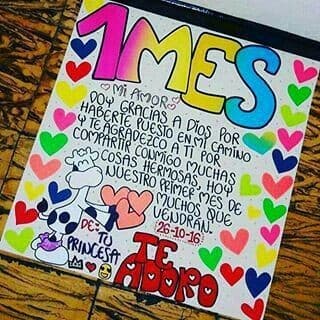 1MES
MI AMOR
DOY GRACIAS A DIOS POR
HABERTE PUESTO EN MI CAMINO
Y TE AGRADEZCO A TI POR
COMPARTIR CONMIGO MUCHAS
COSAS HERMOSAS. HOY
NUESTRO PRIMER MES DE
MUCHOS QUE
VENDRÁN.
26-10-16
DE: TU
PRINCESA
TE
ADORO